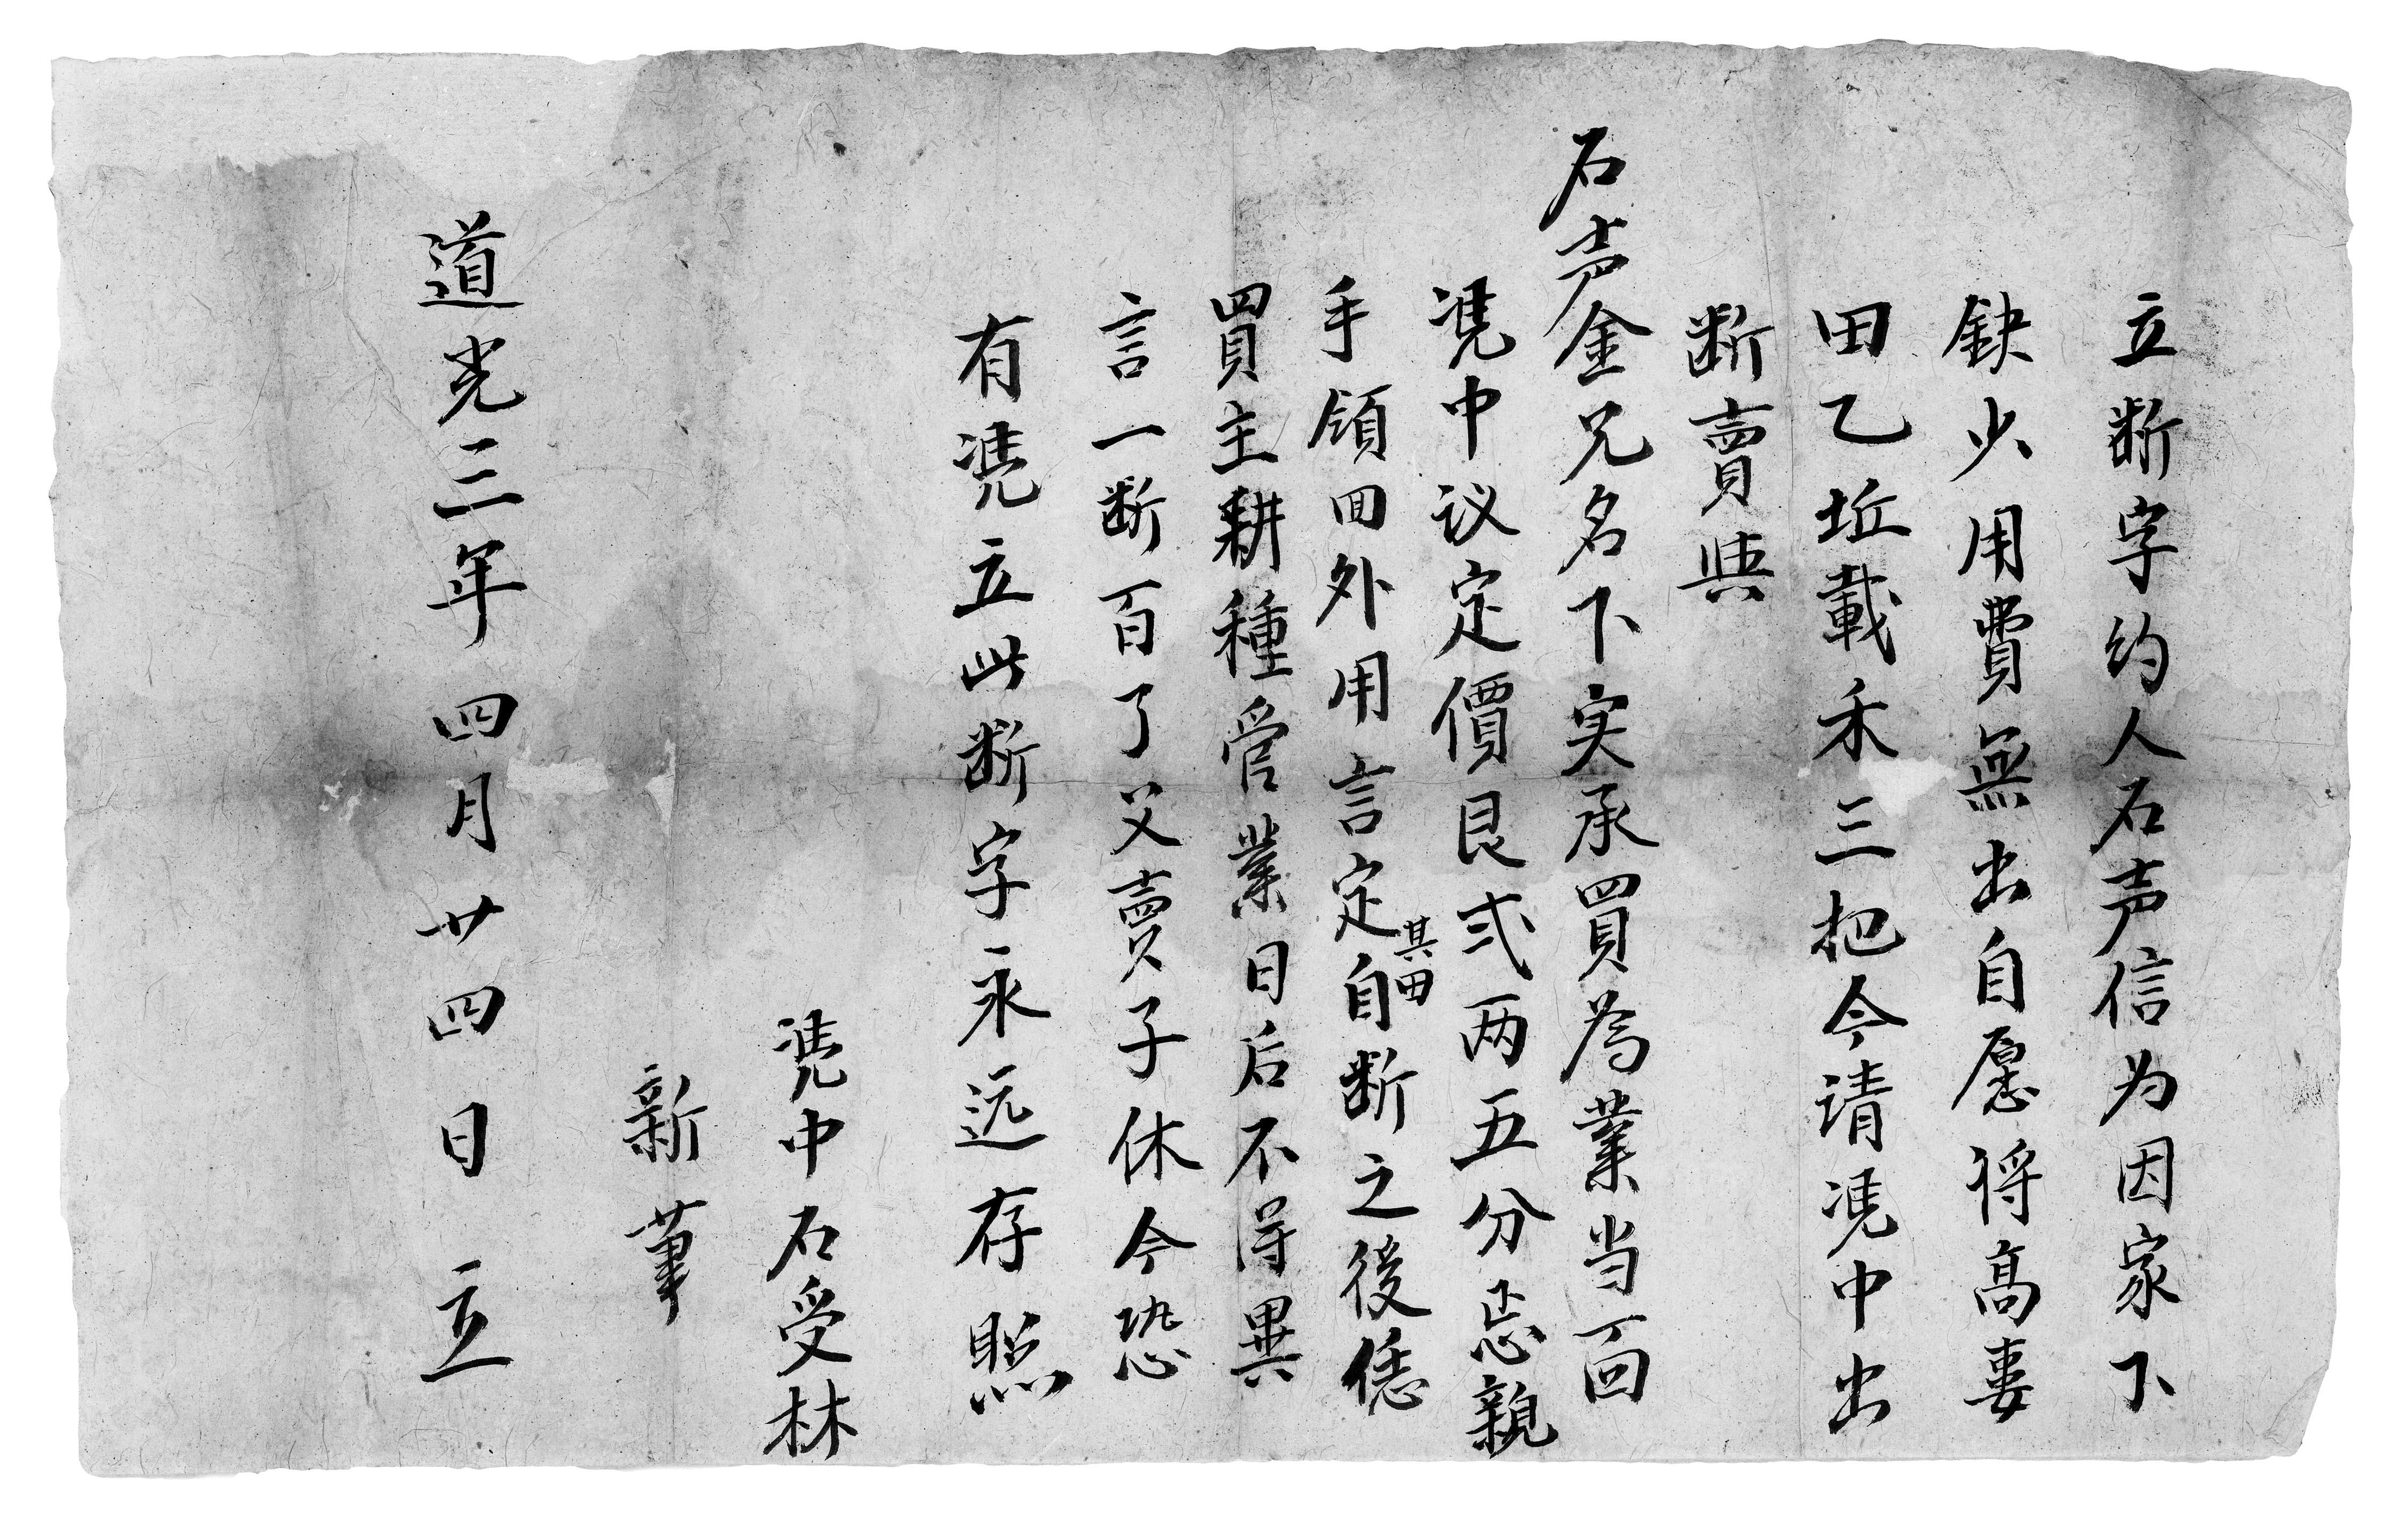 立断字约人石声信为因家下
缺少用費無出自愿将高婁
田乙坵載禾三把今请凴中出
断賣與
石声金兄名下实承買為業当面
凴中议定價艮弍两五分忝親
手領回外用言定其田自断之後恁
買主耕種管業日后不得異
言一断百了父賣子休今恐
有凴立此断字永远存照
凴中石受林
新筆
道光三年四月廿四日立